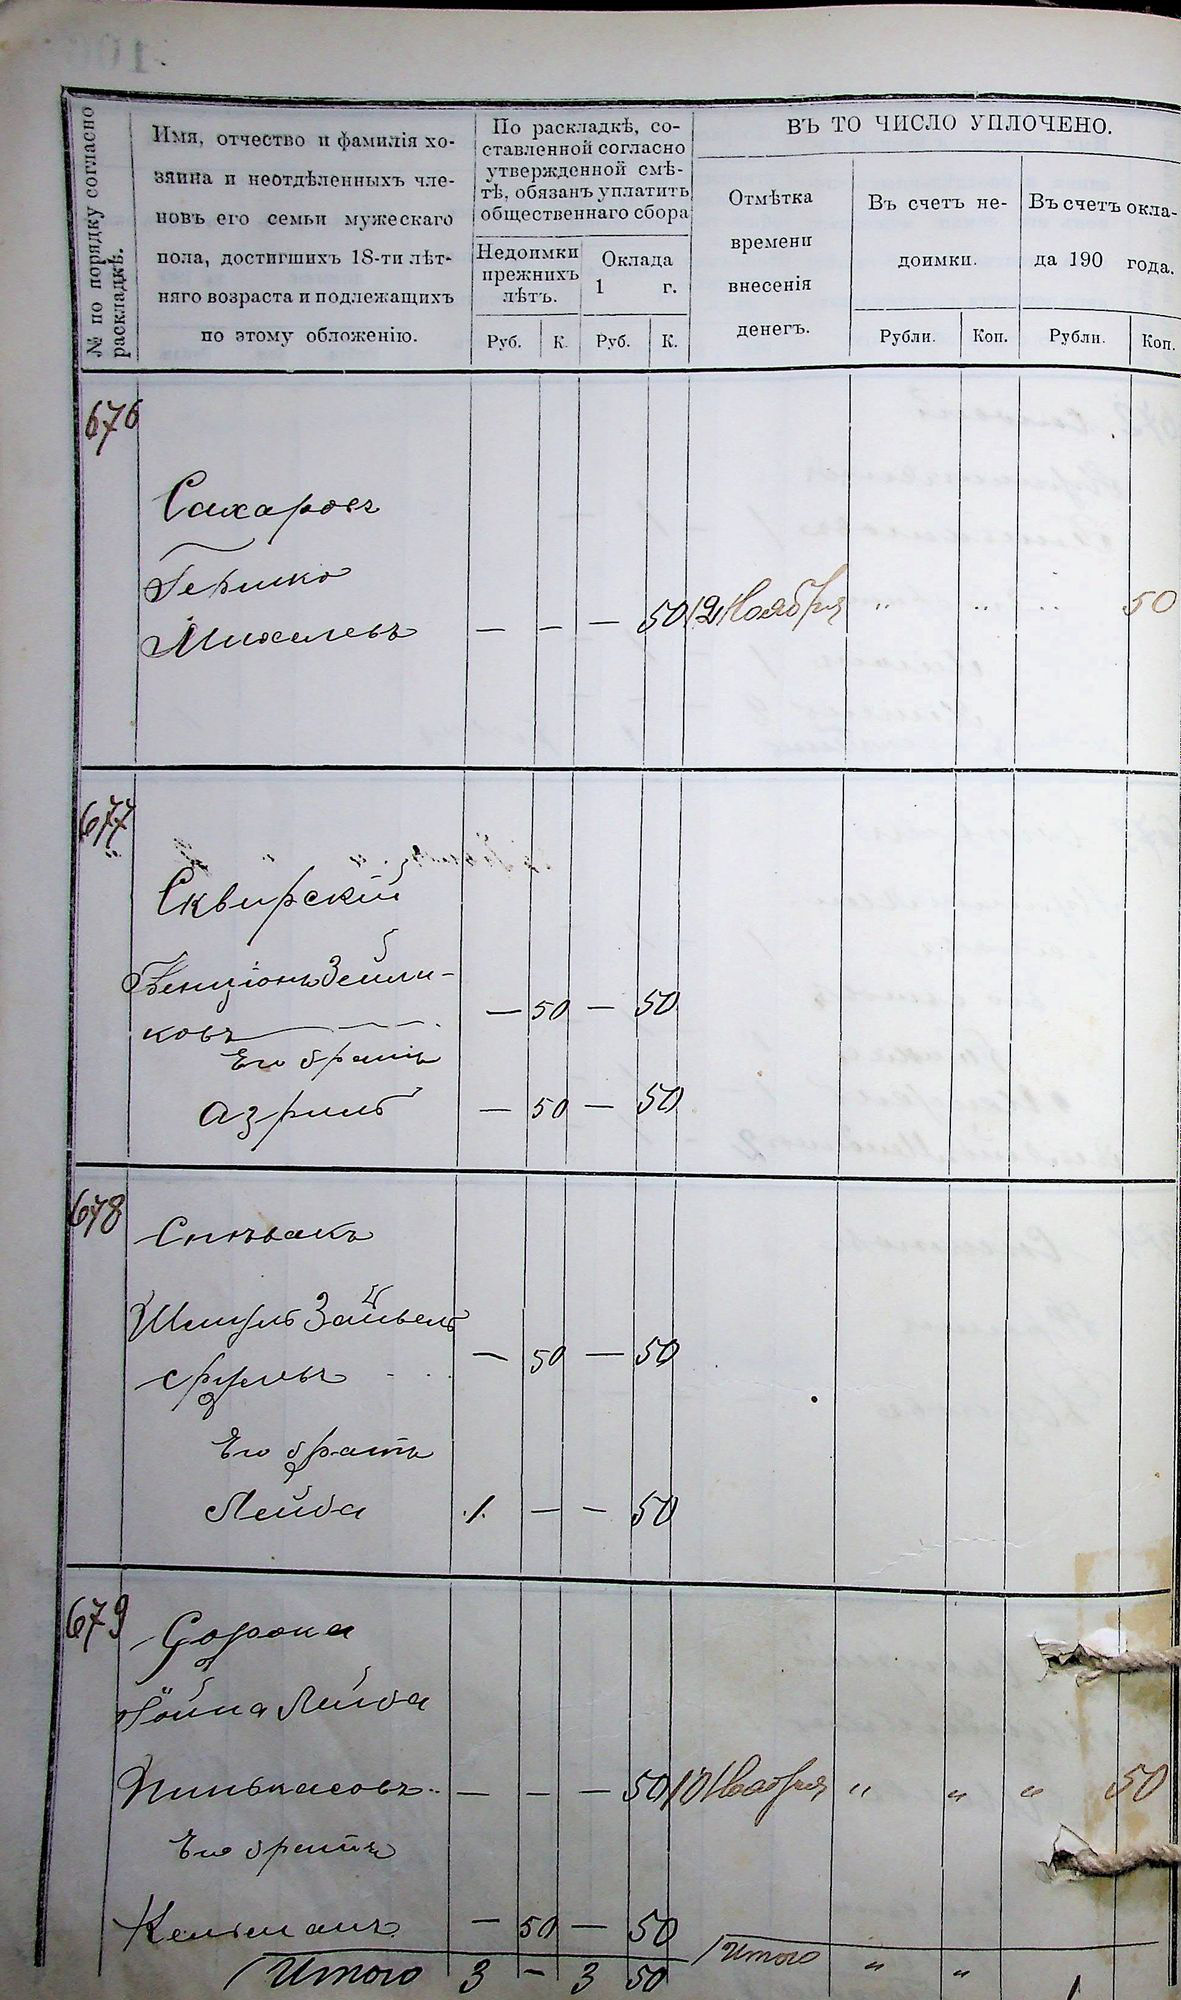 № по порядку согласно
раскладкѣ.
Имя, отчество и фамилія хо-
зяина и неотдѣленныхъ чле-
новъ его семьи мужескаго
пола, достигшихъ 18-ти лѣт-
няго возраста и подлежащихъ
по этому обложенію.
По раскладкѣ, со-
ставленной согласно
утвержденной смѣ-
тѣ, обязанъ уплатить
общественнаго сбора
Недоимки
прежнихъ
лѣтъ.
Оклада
1 г.
Руб. К. Руб. К.
ВЪ ТО ЧИСЛО УПЛОЧЕНО.
Отмѣтка
времени
внесенія
денегъ.
Въ счетъ не-
доимки.
Въ счетъ окла-
да 190 года.
Рубли. Коп. Рубли. Коп.
676
Сахаровъ
Гершко
Михелевъ — — — 50 12 Ноября " " " 50
677
Сквирскій
Бенціонъ Зейли-
ковъ — 50 — 50
Его братъ
Азриль — 50 — 50
678
Спѣвакъ
Шмуль Зайвель
Срулевъ — 50 — 50
Его братъ
Лейба 1 — — 50
679
Сорока
Іойна Лейба
Пиньхасовъ — — — 50 10 Ноября " " " 50
Его братъ
Кельманъ — 50 — 50
Итого 3 — 3 50 Итого " " 1